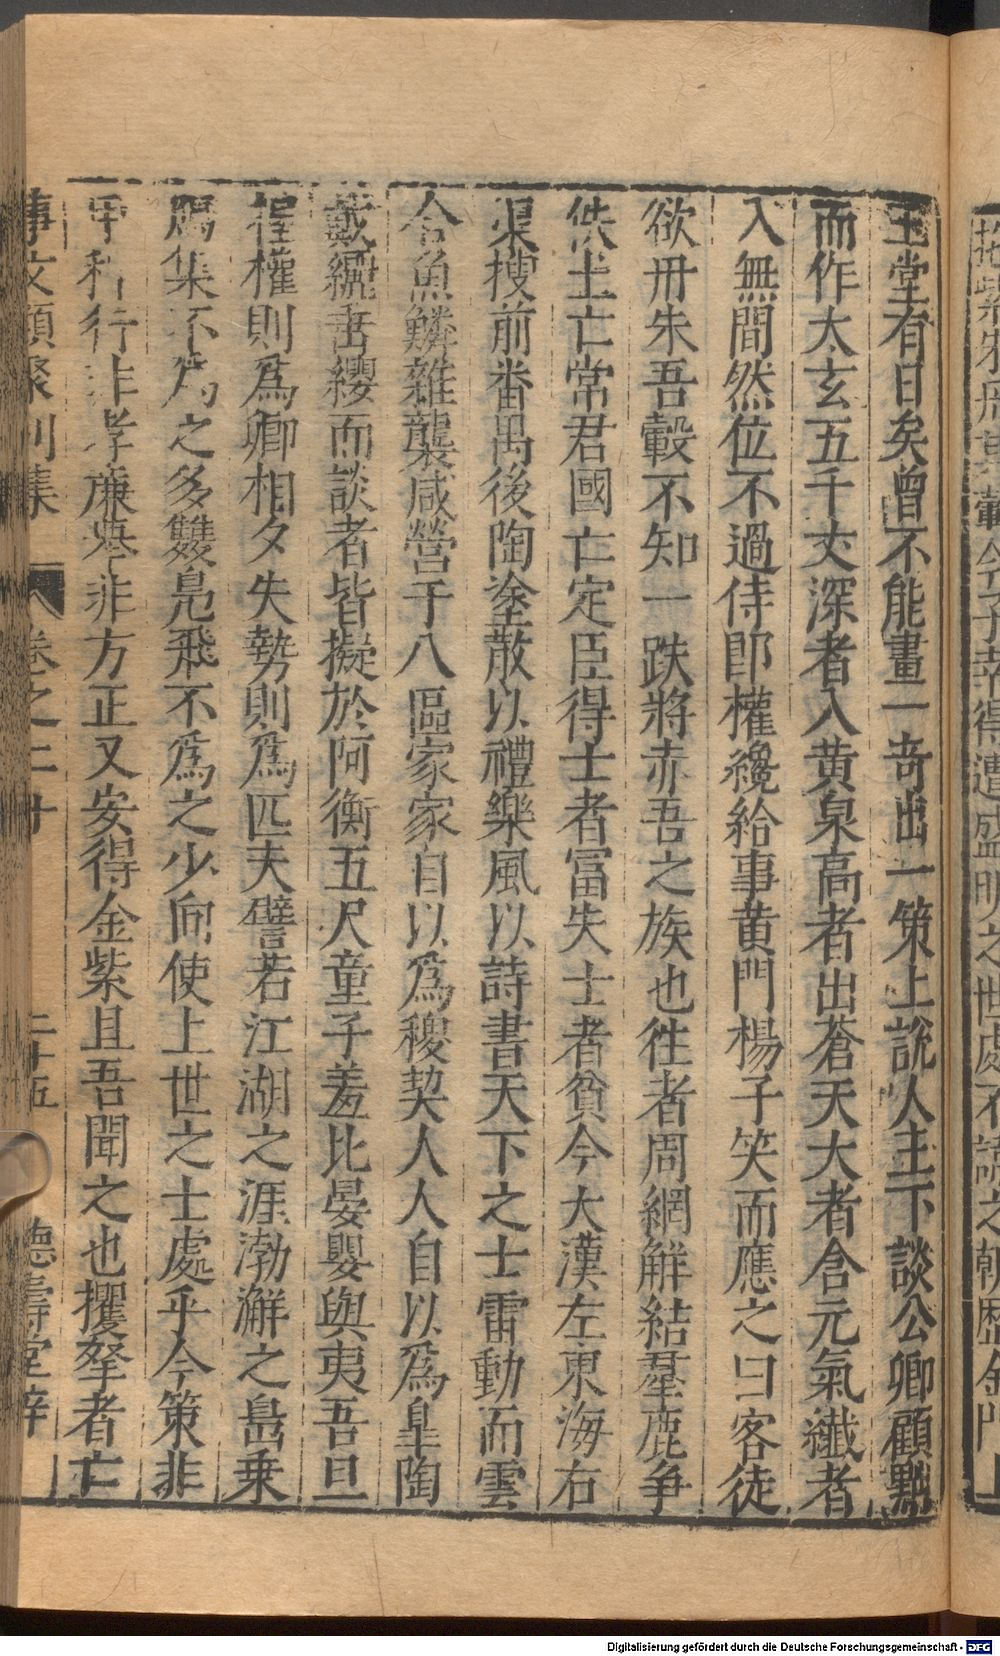 玉堂有日矣曾不能畫一奇出一策上說人主下談公卿顧黙
而作太玄五千文深者入黄泉高者出蒼天大者含元氣纖者
入無間然位不過侍郎權纔給事黄門楊子笑而應之曰客徒
欲丹朱吾轂不知一跌將赤吾之族也往者周網解結羣鹿爭
佚士亡常君國亡定臣得士者富失士者貧今大漢左東海右
渠搜前番禺後陶塗散以禮樂風以詩書天下之士雷動而雲
合魚鱗雜襲咸營于八區家家自以爲稷契人人自以爲皐陶
戴縰垂纓而談者皆擬於阿衡五尺童子羞比晏嬰與夷吾旦
握權則爲卿相夕失勢則爲匹夫譬若江湖之涯渤澥之島乗
鴈集不爲之多雙鳬飛不爲之少向使上世之士處乎今策非
甲科行非孝廉舉非方正又安得金紫且吾聞之也攫拏者亡
事文類聚別集 卷之二十 二十五 德壽堂梓
之世處不諱之朝歷金門上
Digitalisierung gefördert durch die Deutsche Forschungsgemeinschaft - DFG